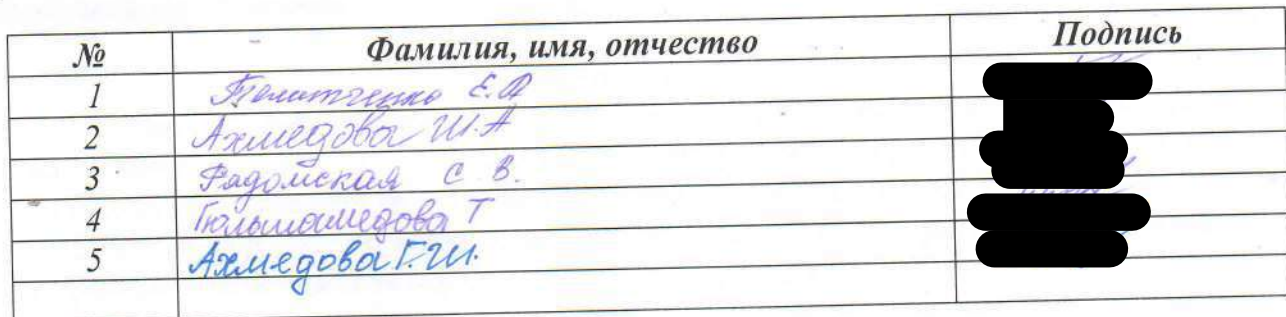 № Фамилия, имя, отчество Подпись
1 Е.
2 Ахмедова Ш.А
3 Радомская С В.
4 Гюльмамедова Т
5 Ахмедова Г.Ш.